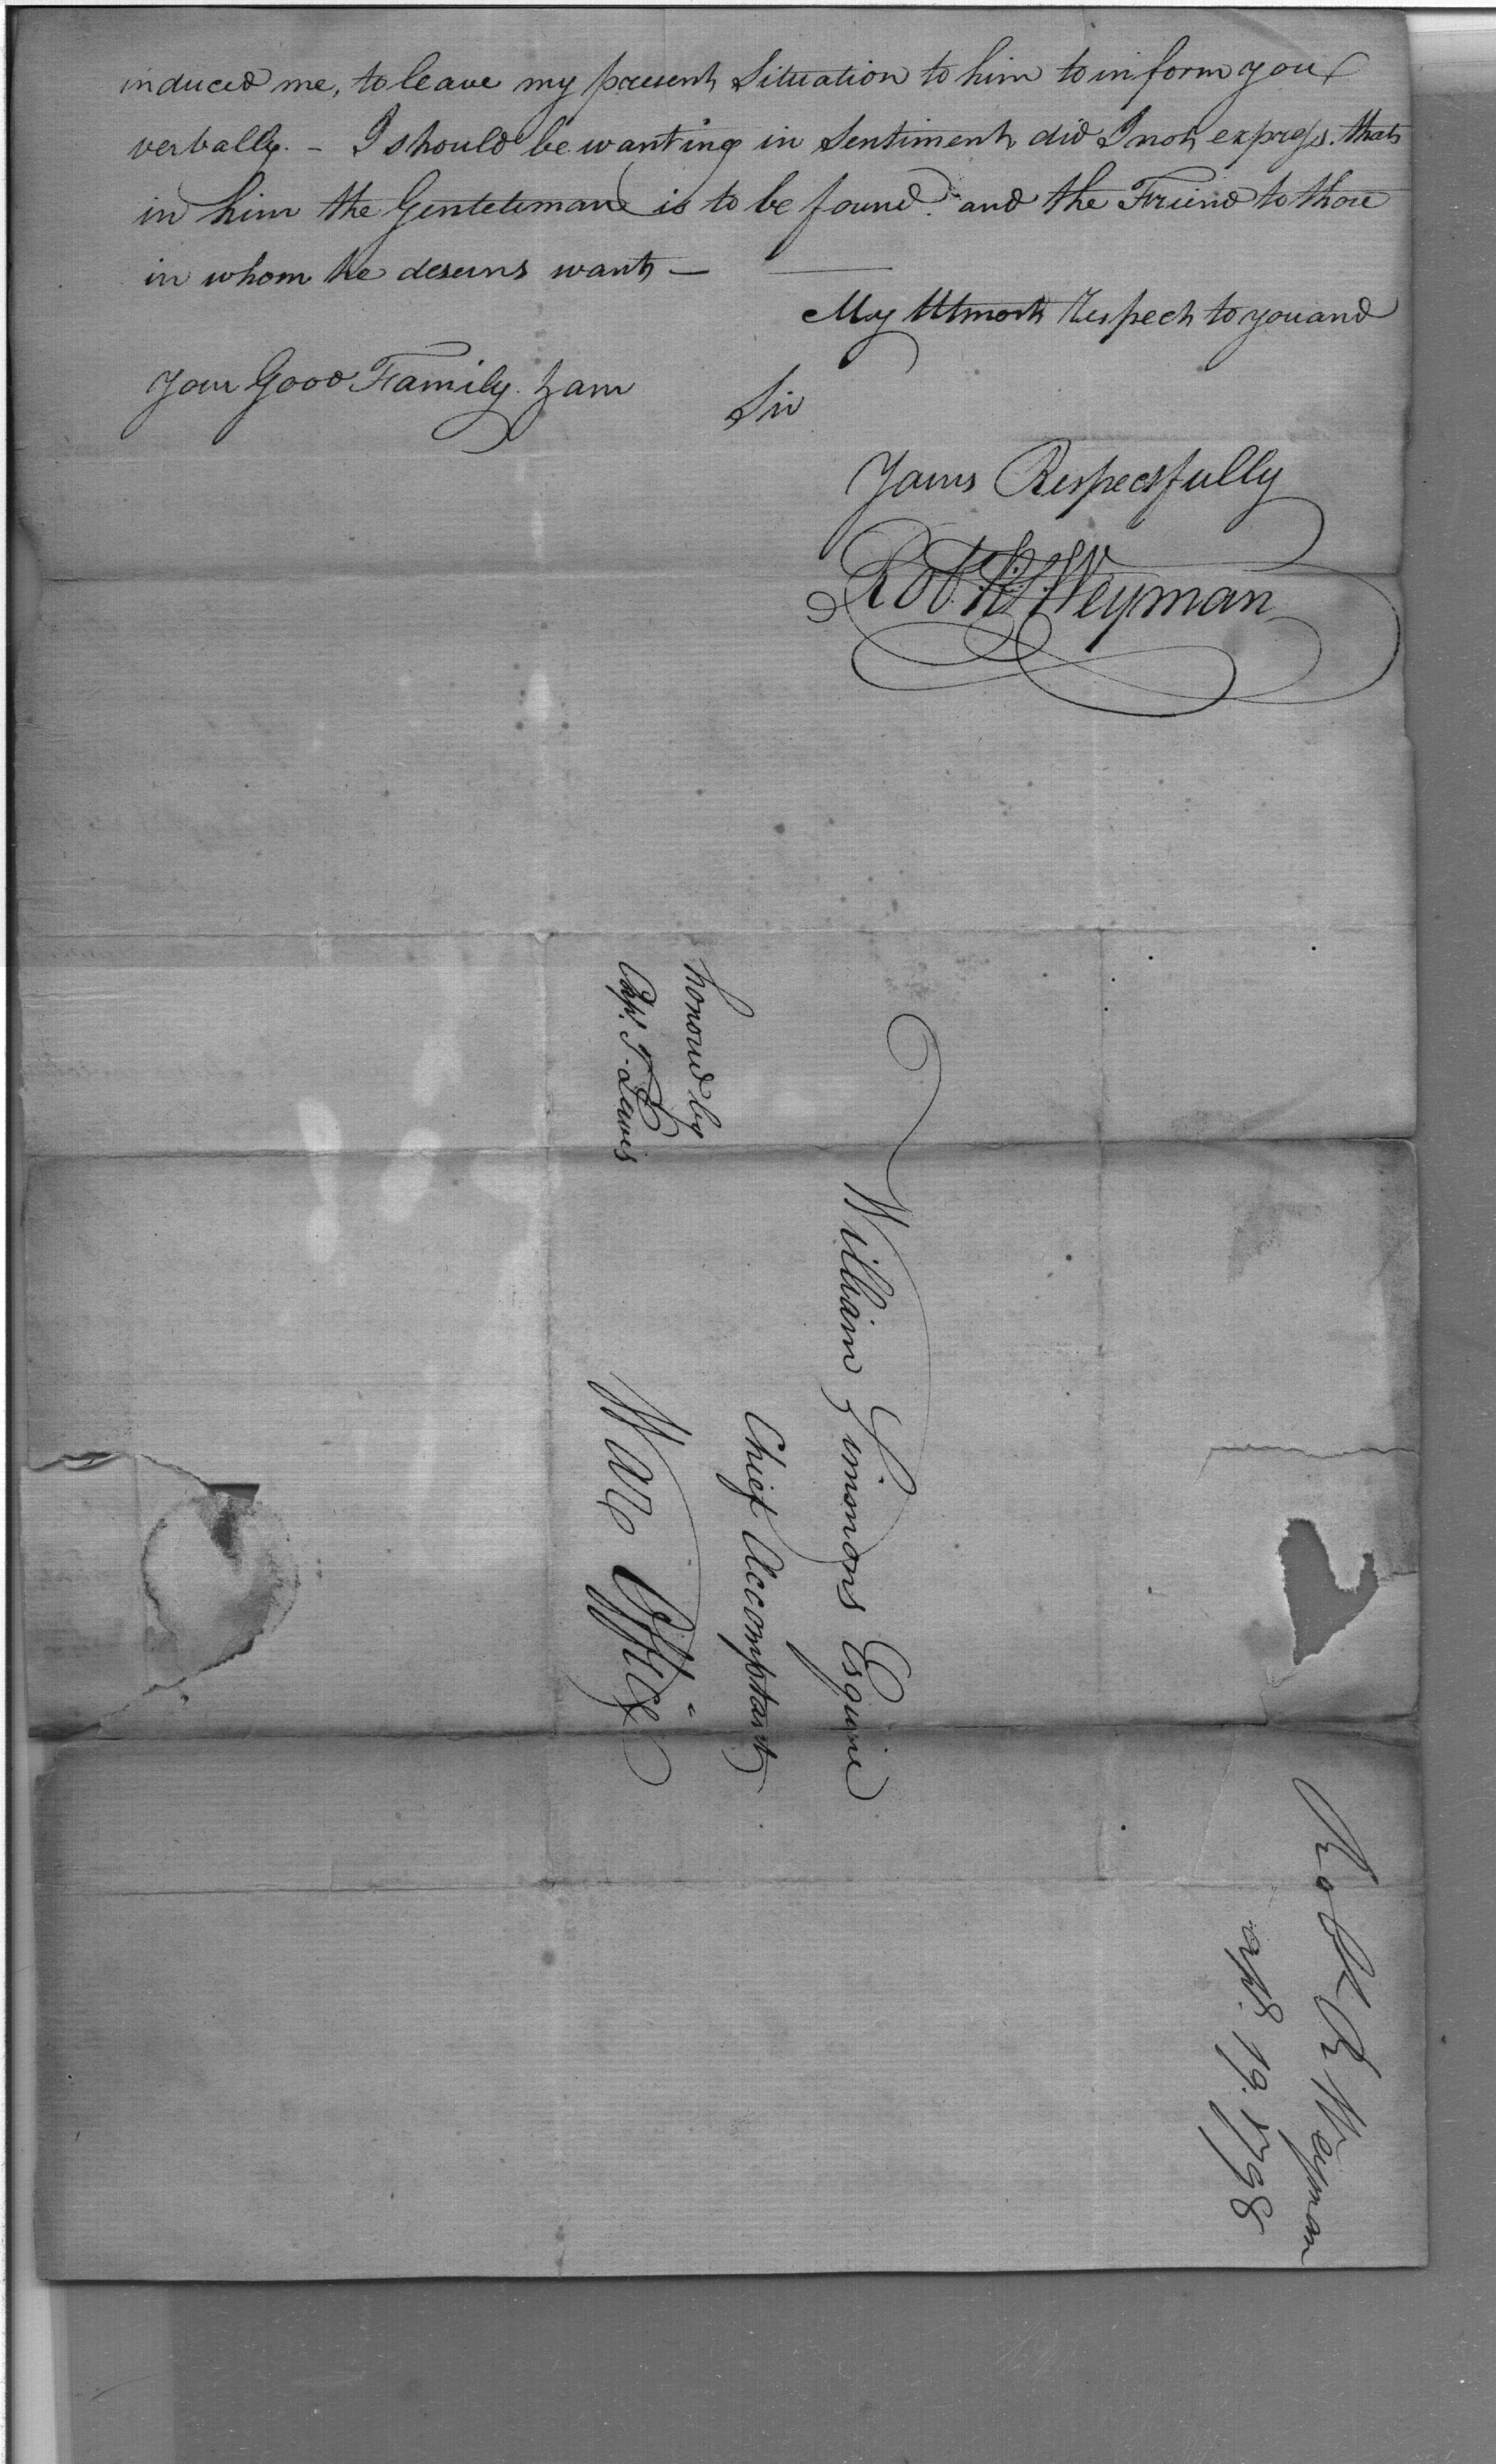 induced me, to leave my present Situation to him to inform you
verbally. - I should be wanting in Sentiment did I not express. that
in him the Gentleman is to be found. and the Friend to those
in whom he deserns want —
My Utmost Respect to you and
Your Good Family. I am
Sir
Yours Respectfully
Rob.t R: Weyman
honourd by
Cap.t T. Lewis
William Simmons Esquire
Chief Accomptant
War Office
Robt R Weyman
Apl. 19. 1798